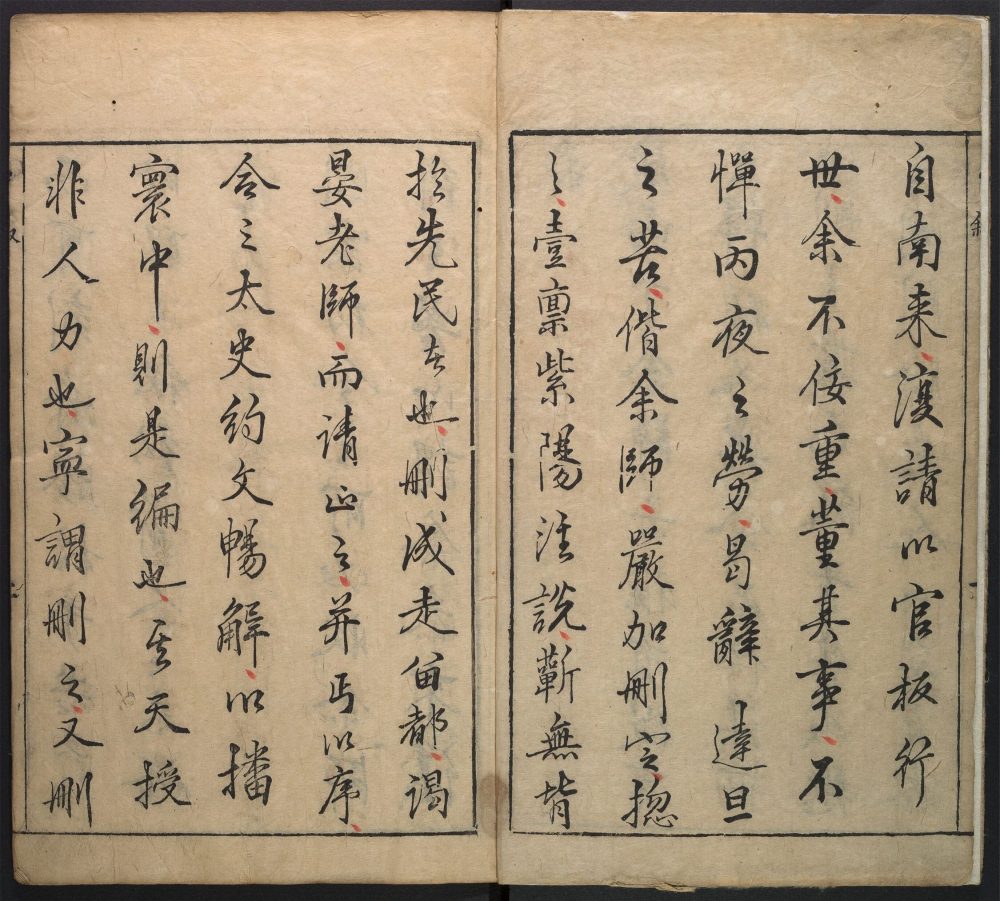 自南来復請以官板行
世余不佞重董其事不
憚丙夜之勞曷辭達旦
之苦偕余師嚴加刪定揔
之壹禀紫陽注説蘄無背
於先民者也刪成走留都謁
晏老師而請正之并丐以序
合之太史約文暢解以播
寰中則是編也其天授
非人力也寧謂刪之又刪